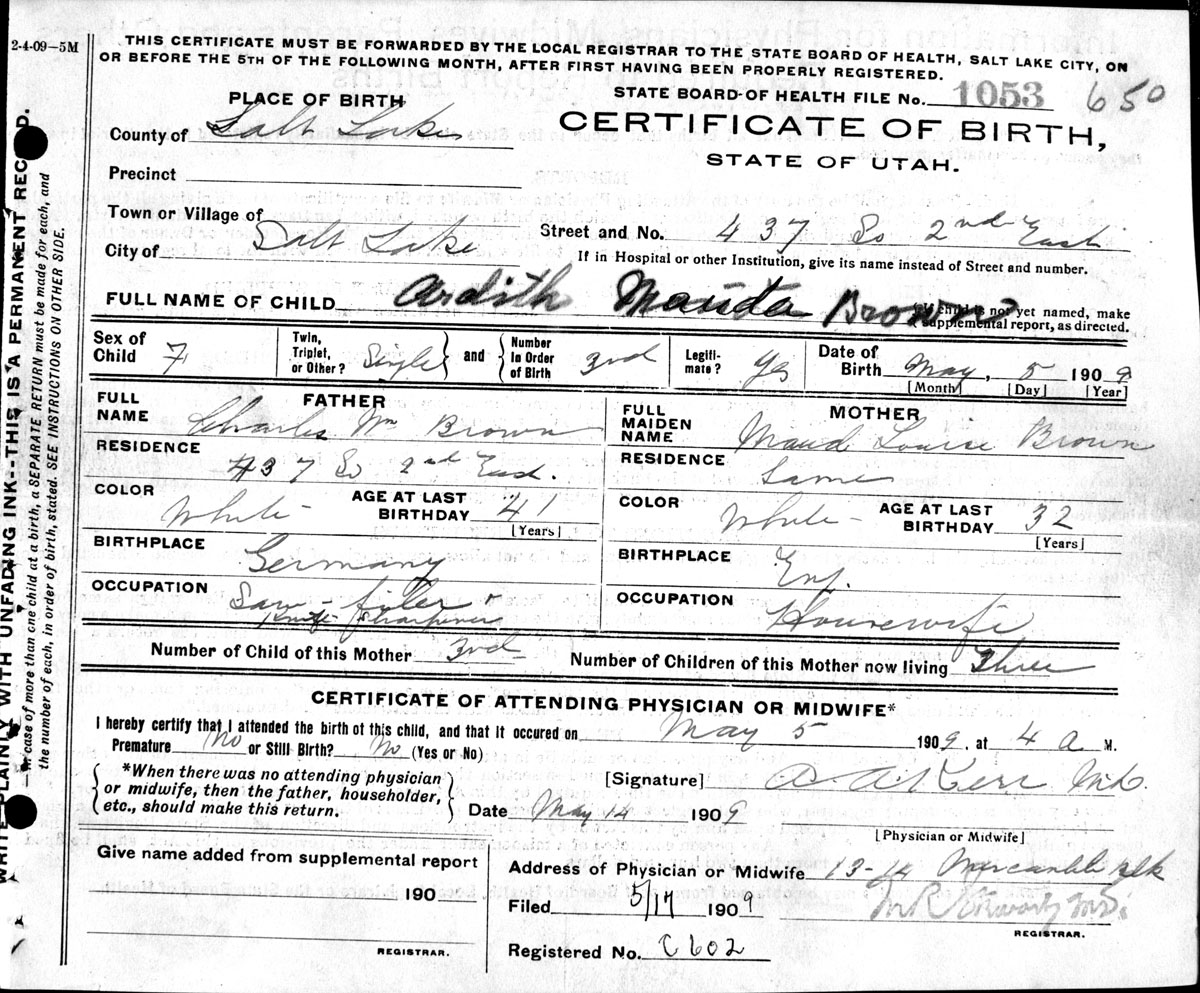 2-4-09—5M
THIS CERTIFICATE MUST BE FORWARDED BY THE LOCAL REGISTRAR TO THE STATE BOARD OF HEALTH, SALT LAKE CITY, ON
OR BEFORE THE 5TH OF THE FOLLOWING MONTH, AFTER FIRST HAVING BEEN PROPERLY REGISTERED.
STATE BOARD OF HEALTH FILE No. 1053 650
PLACE OF BIRTH
CERTIFICATE OF BIRTH,
STATE OF UTAH.
County of Salt Lake
Precinct
Town or Village of
City of Salt Lake
Street and No. 437 So 2nd East
If in Hospital or other Institution, give its name instead of Street and number.
FULL NAME OF CHILD Ardith Brown
If child is not yet named, make
supplemental report, as directed.
Sex of Child F
Twin, Triplet, or Other? Single and Number In Order of Birth 3rd
Legiti-mate? Yes
Date of Birth May, 5 1909
[Month] [Day] [Year]
FATHER
FULL NAME Charles Wm Brown
RESIDENCE 437 So 2nd East.
COLOR White AGE AT LAST BIRTHDAY 41
[Years]
BIRTHPLACE Germany
OCCUPATION Saw-filer &
Knife Sharpener
MOTHER
FULL MAIDEN NAME Maud Louise Brown
RESIDENCE Same
COLOR White AGE AT LAST BIRTHDAY 32
[Years]
BIRTHPLACE Eng.
OCCUPATION Housewife
Number of Child of this Mother 3rd Number of Children of this Mother now living Three
CERTIFICATE OF ATTENDING PHYSICIAN OR MIDWIFE*
I hereby certify that I attended the birth of this child, and that it occured on May 5 1909, at 4 a M.
Premature No or Still Birth? No (Yes or No)
*When there was no attending physician
or midwife, then the father, householder,
etc., should make this return.
[Signature] Kerr M.D.
Date May 14 1909
[Physician or Midwife]
Give name added from supplemental report
190
REGISTRAR.
Address of Physician or Midwife 13-14 Mercantile Blk
Filed 5/17 1909
REGISTRAR.
Registered No. C602
WRITE PLAINLY WITH UNFADING INK--THIS IS A PERMANENT RECORD.
In case of more than one child at a birth, a SEPARATE RETURN must be made for each, and
the number of each, in order of birth, stated. SEE INSTRUCTIONS ON OTHER SIDE.